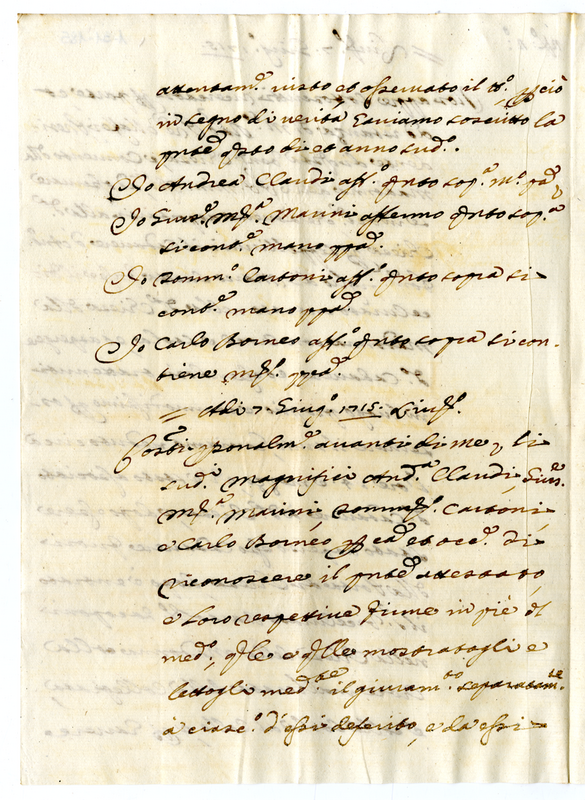 attentam.e visto et osservato il tt.o, p ciò
in segno di verità haviamo soscritto la
pnte q.sto dì et anno sud.o.
Io Andrea Claudi aff.o q.nto sop.a m.o pp.a
Io Gius.e M.a Marini affermo q.nto sop.a
si cont.e mano pp.a
Io Domm.o Carboni aff.o q.nto sopra si
cont.e mano pp.a
Io Carlo Borneo aff.o q.nto sopra si con-
tiene pp.a
= Adi 7 Giug.o 1715
Costti psonalm.e avanti di me li
sud.i Magnifici And.a Claudi, Gius.e
M.a Marini Carboni
e Carlo Borneo ad et di
riconoscere il pnte attestato
e loro respettive firme in piè di
med.o, q.le e q.lle mostratogli e
lettogli med.te il giuram.to separatam.te
à ciasc.o d'essi deferito, e da essi